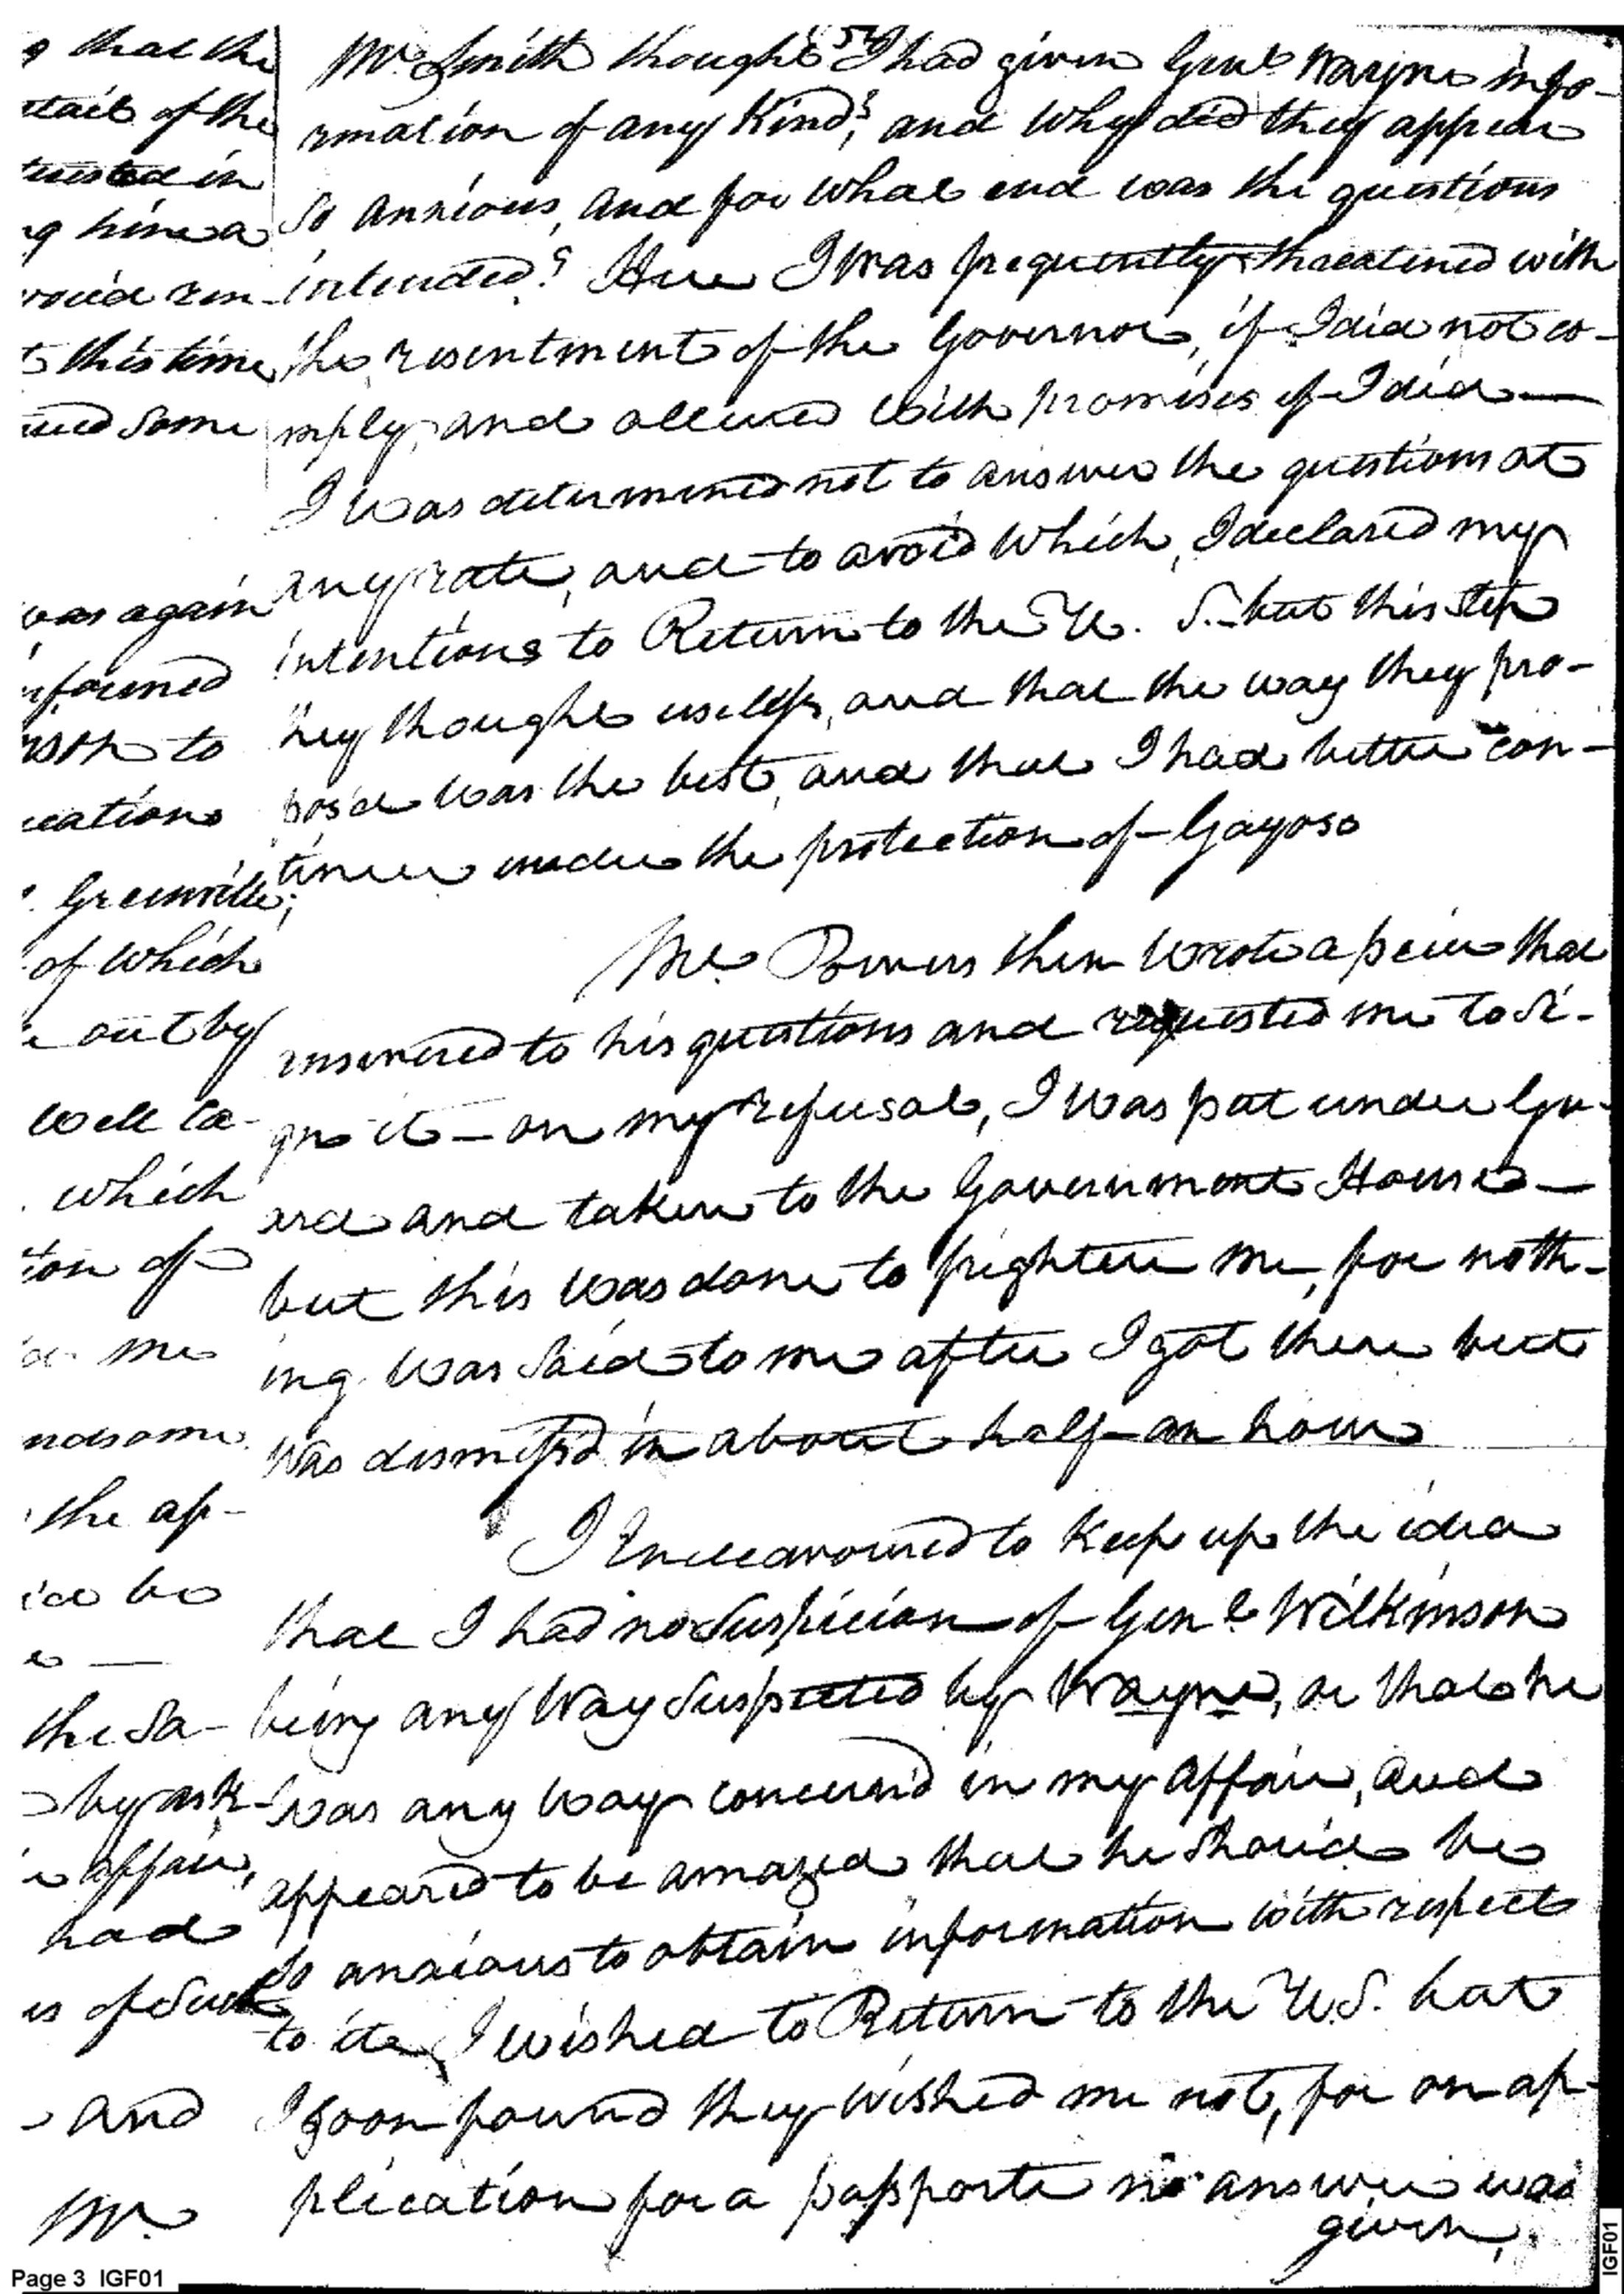 g that the
etail of the
terested in
ng him a
would ren-
t this time
some
was again
nformed
to
ications
. Greenville;
of which
e out by
well ca-
. which
tion of
me
ndsome
the ap-
be
e —
the sa-
by ask-
e affair,
had
es of such
- and
Mr.
54
Mr. Smith thought I had given Genl. Wayne info-
rmation of any Kind? and why did they appear
so anxious, and for what end was the questions
intended? Here I was frequently threatened with
the resentment of the Governor, if I did not co-
mply, and allured with promises if I did —
I was determined not to answer the questions at
any rate, and to avoid which, I declared my
intentions to Return to the U. S. – but this step
they thought useless, and that the way they pro-
pos'd was the best, and that I had better con-
tinue under the protection of Gayoso
Mr. Powers then wrote a peice that
answered to his questions and requested me to si-
gn it – on my refusal, I was put under Gu-
ard and taken to the Government House —
but this was done to frighten me, for noth-
ing was said to me after I got there but
was dismiss'd in about half an hour
I Endeavoured to keep up the idea
that I had no suspicion of Genl. Wilkinson
being any way suspected by Wayne, or that he
was any way concern'd in my affair, and
appeared to be amazed that he should be
so anxious to obtain information with respect
to it, I wished to Return to the U.S. but
I soon found they wished me not, for on ap-
plication for a passport no answer was
given,
Page 3 IGF01
IGF01